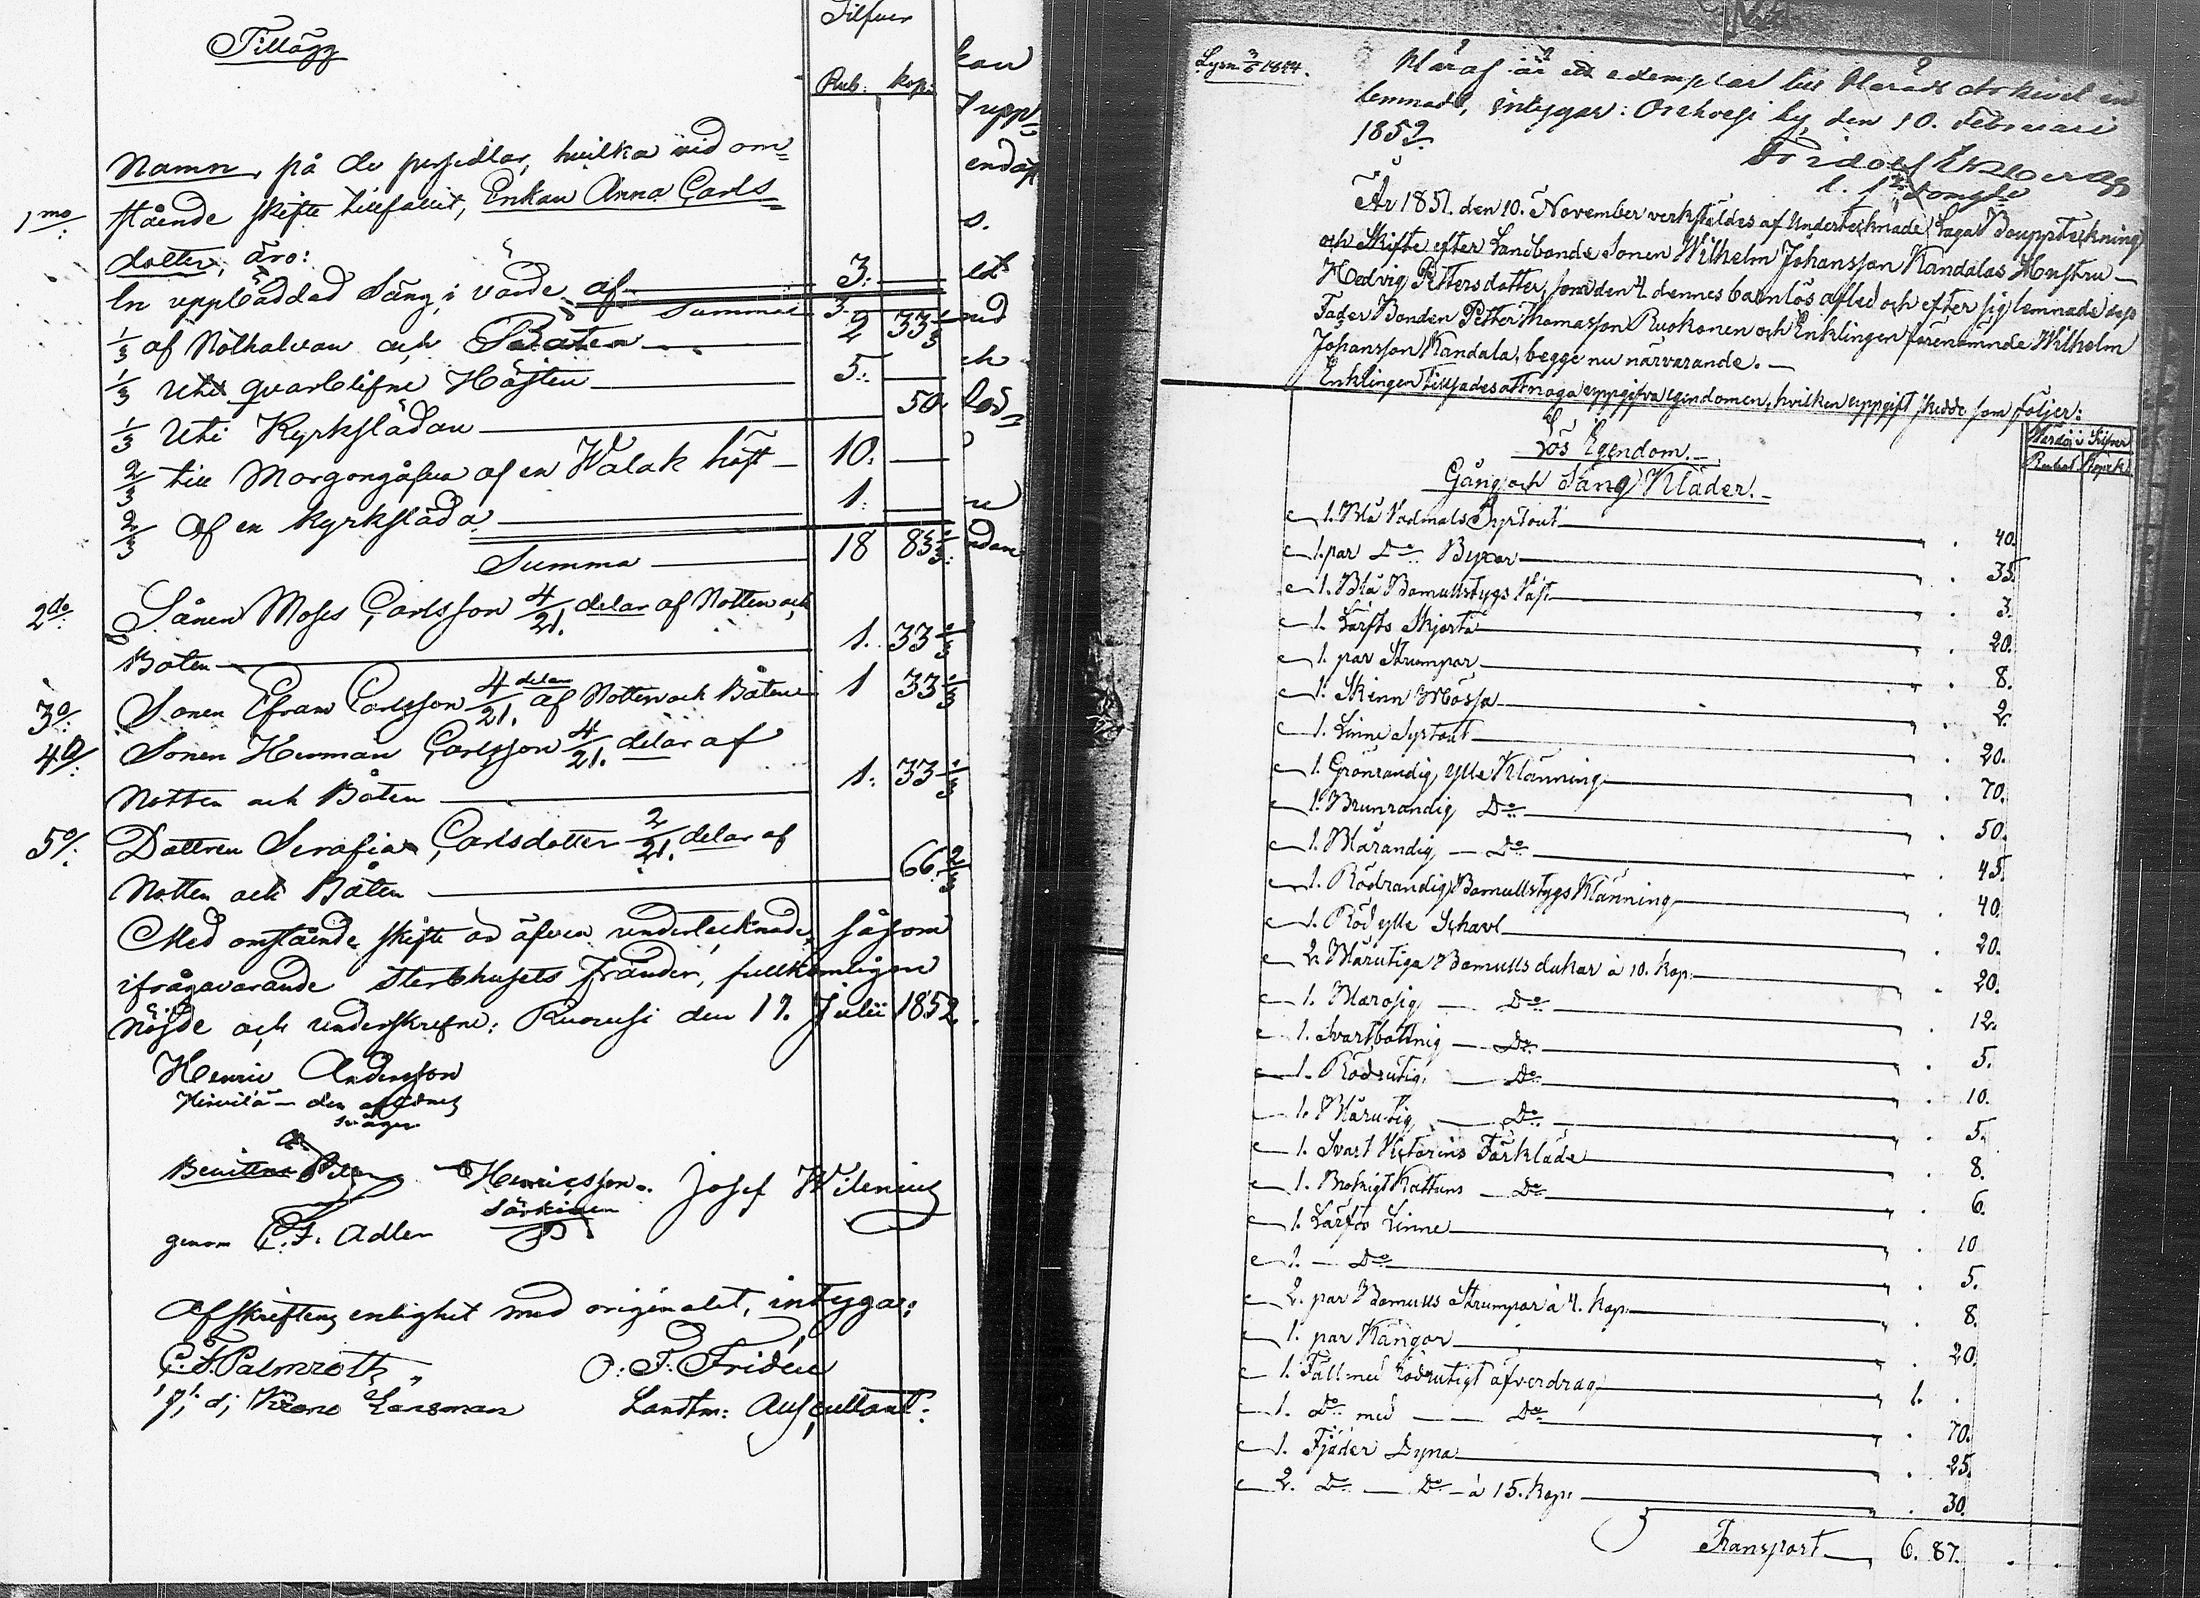 Tillägg
Silfver
Rub. kop:
Namn, på de persedlar, hvilka vid om=
1mo stående skifte tillfallit, Enkan Anna Carls=
dotter, äro:
En uppbäddad Säng, i värde af 3.
Summa 3.
1/3 af Nothalvan och Båten 2 33 1/3
1/3 Uti qvarblifne Hästen 5.
1/3 Uti Kyrkslädan 50
2/3 till Morgongåfva af en Walak häst 10.
2/3 af en Kyrksläda 1.
Summa 18 83 1/3
2do Sånen Moses Carlsson 4/21 delar af Notten och
Båten 1. 33 1/3
3o Sonen Efram Carlsson 4/21 delar af Notten och Båten 1 33 1/3
4o Sonen Herman Carlsson 4/21 delar af
Notten och Båten 1. 33 1/3
5o Dottren Serafia Carlsdotter 2/21 delar af
Notten och Båten 66 2/3
Med omstående skifte äro äfven undertecknade, såsom
ifrågavarande sterbhusets fränder, fullkomligen
nöjde och underskrefne: Ruovesi den 17. Julii 1852.
Henric Andersson
den aflidnes
svåger
Henricsson Josef Wilenius
Särkinen
genom C. F. Adler
Afskriftens enlighet med originalet, intygar:
C. F. Palmroth O. P. Fridén
Krono Länsman Landtm: Auscultant:
kan
upp
enda
s.
et
id
ch
lod=
u
dom
Lysn 3/6 1844.
Häraf är ett exemplar till Härads Arkivet in
lemnadt, intygar: Orihvesi by, den 10. Februari
1852.
Fridolf Ekberg
År 1851. den 10. November verkställdes af Undertecknade Laga Bouppteckning
och Skifte efter Landbonde Sonen Wilhelm Johansson Kandalas Hustru
Hedvig Pettersdotter, som den 4. dennes barnlös afled och efter sig lemnade dess
Fader Bonden Petter Thomasson Ruokonen och Enklingen förenämnde Wilhelm
Johansson Kandala, begge nu närvarande. —
Enklingen tillsades att noga uppgifva egendomen, hvilken uppgift skedde som följer:
Lös Egendom. Värde i Silfver
Rubel Kopek
Gång och Säng Kläder.
1. Blå Vadmals Syrtout . 40.
1. par Do Byxor . 35.
1. Blå Bomullstygs Väst . 3.
1. Lärfts Skjorta . 20.
1. par Strumpor . 8.
1. Skinn Mössa . 2.
1. Linne Syrtout . 20.
1. Grönrandig, ylle Klänning . 70.
1. Brunrandig Do . 50.
1. Blårandig — Do . 45.
1. Rödrandig Bomullstygs Klänning . 40.
1. Röd ylle Schavl . 20.
2. Blårutiga Bomulls dukar à 10. kop. . 20.
1. Blårosig — Do . 12.
1. Svartbottnig — Do . 5.
1. Rödrutig — Do . 10.
1. Blårutig — Do . 5.
1. Svart Förkläde . 8.
1. Brokigt Kattuns — Do . 6.
1. Lärfts Linne . 10
1. — Do . 5.
2. par Bomulls Strumpor à 4. kop . 8.
1. par Kängor . 20.
1. Fäll med Rödrutigt öfverdrag 1. .
1. Do med — — Do . 70.
1. Fjäder Dyna . 25.
2. Do — Do — à 15. kop: . 30.
Transport 6. 87.